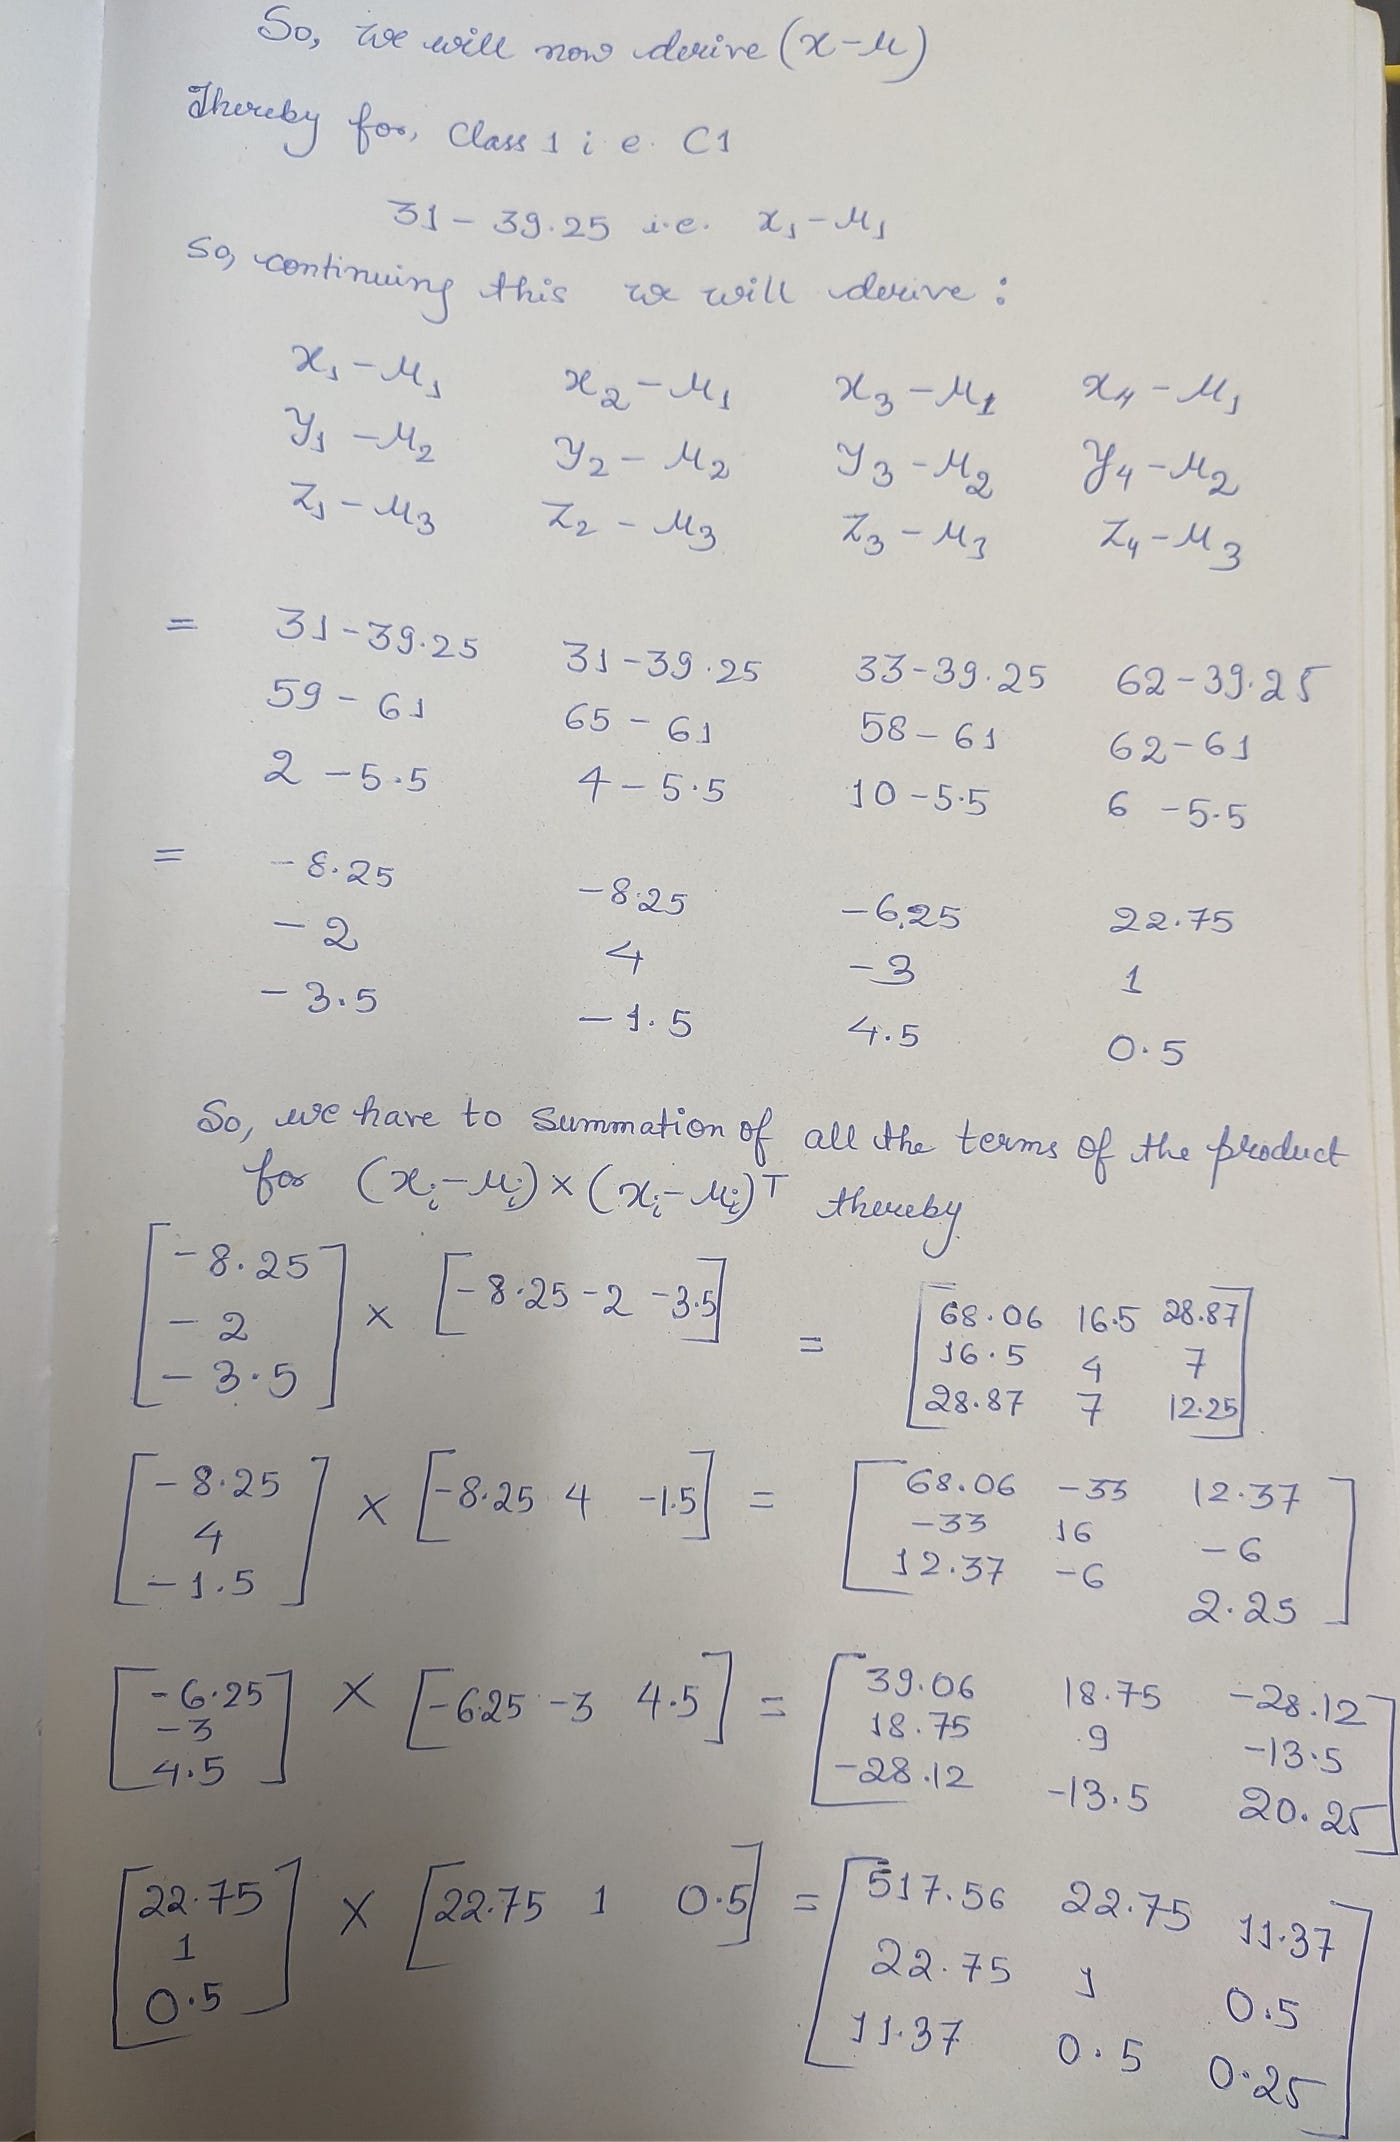 So, we will now derive (x-μ)
Thereby for, Class 1 i e. C1
31 - 39.25 i.e. x₁ - μ₁
So, continuing this we will derive :
x₁ - μ₁ x₂ - μ₁ x₃ - μ₁ x₄ - μ₁
y₁ - μ₂ y₂ - μ₂ y₃ - μ₂ y₄ - μ₂
z₁ - μ₃ z₂ - μ₃ z₃ - μ₃ z₄ - μ₃
= 31 - 39.25 31 - 39.25 33 - 39.25 62 - 39.25
59 - 61 65 - 61 58 - 61 62 - 61
2 - 5.5 4 - 5.5 10 - 5.5 6 - 5.5
= -8.25 -8.25 -6.25 22.75
-2 4 -3 1
-3.5 -1.5 4.5 0.5
So, we have to Summation of all the terms of the product
for (xᵢ - μᵢ) × (xᵢ - μᵢ)ᵀ thereby
[-8.25 × [-8.25 -2 -3.5] = [68.06 16.5 28.87
-2 16.5 4 7
-3.5] 28.87 7 12.25]
[-8.25 × [-8.25 4 -1.5] = [68.06 -33 12.37
4 -33 16 -6
-1.5] 12.37 -6 2.25]
[-6.25 × [-6.25 -3 4.5] = [39.06 18.75 -28.12
-3 18.75 9 -13.5
4.5] -28.12 -13.5 20.25]
[22.75 × [22.75 1 0.5] = [517.56 22.75 11.37
1 22.75 1 0.5
0.5] 11.37 0.5 0.25]